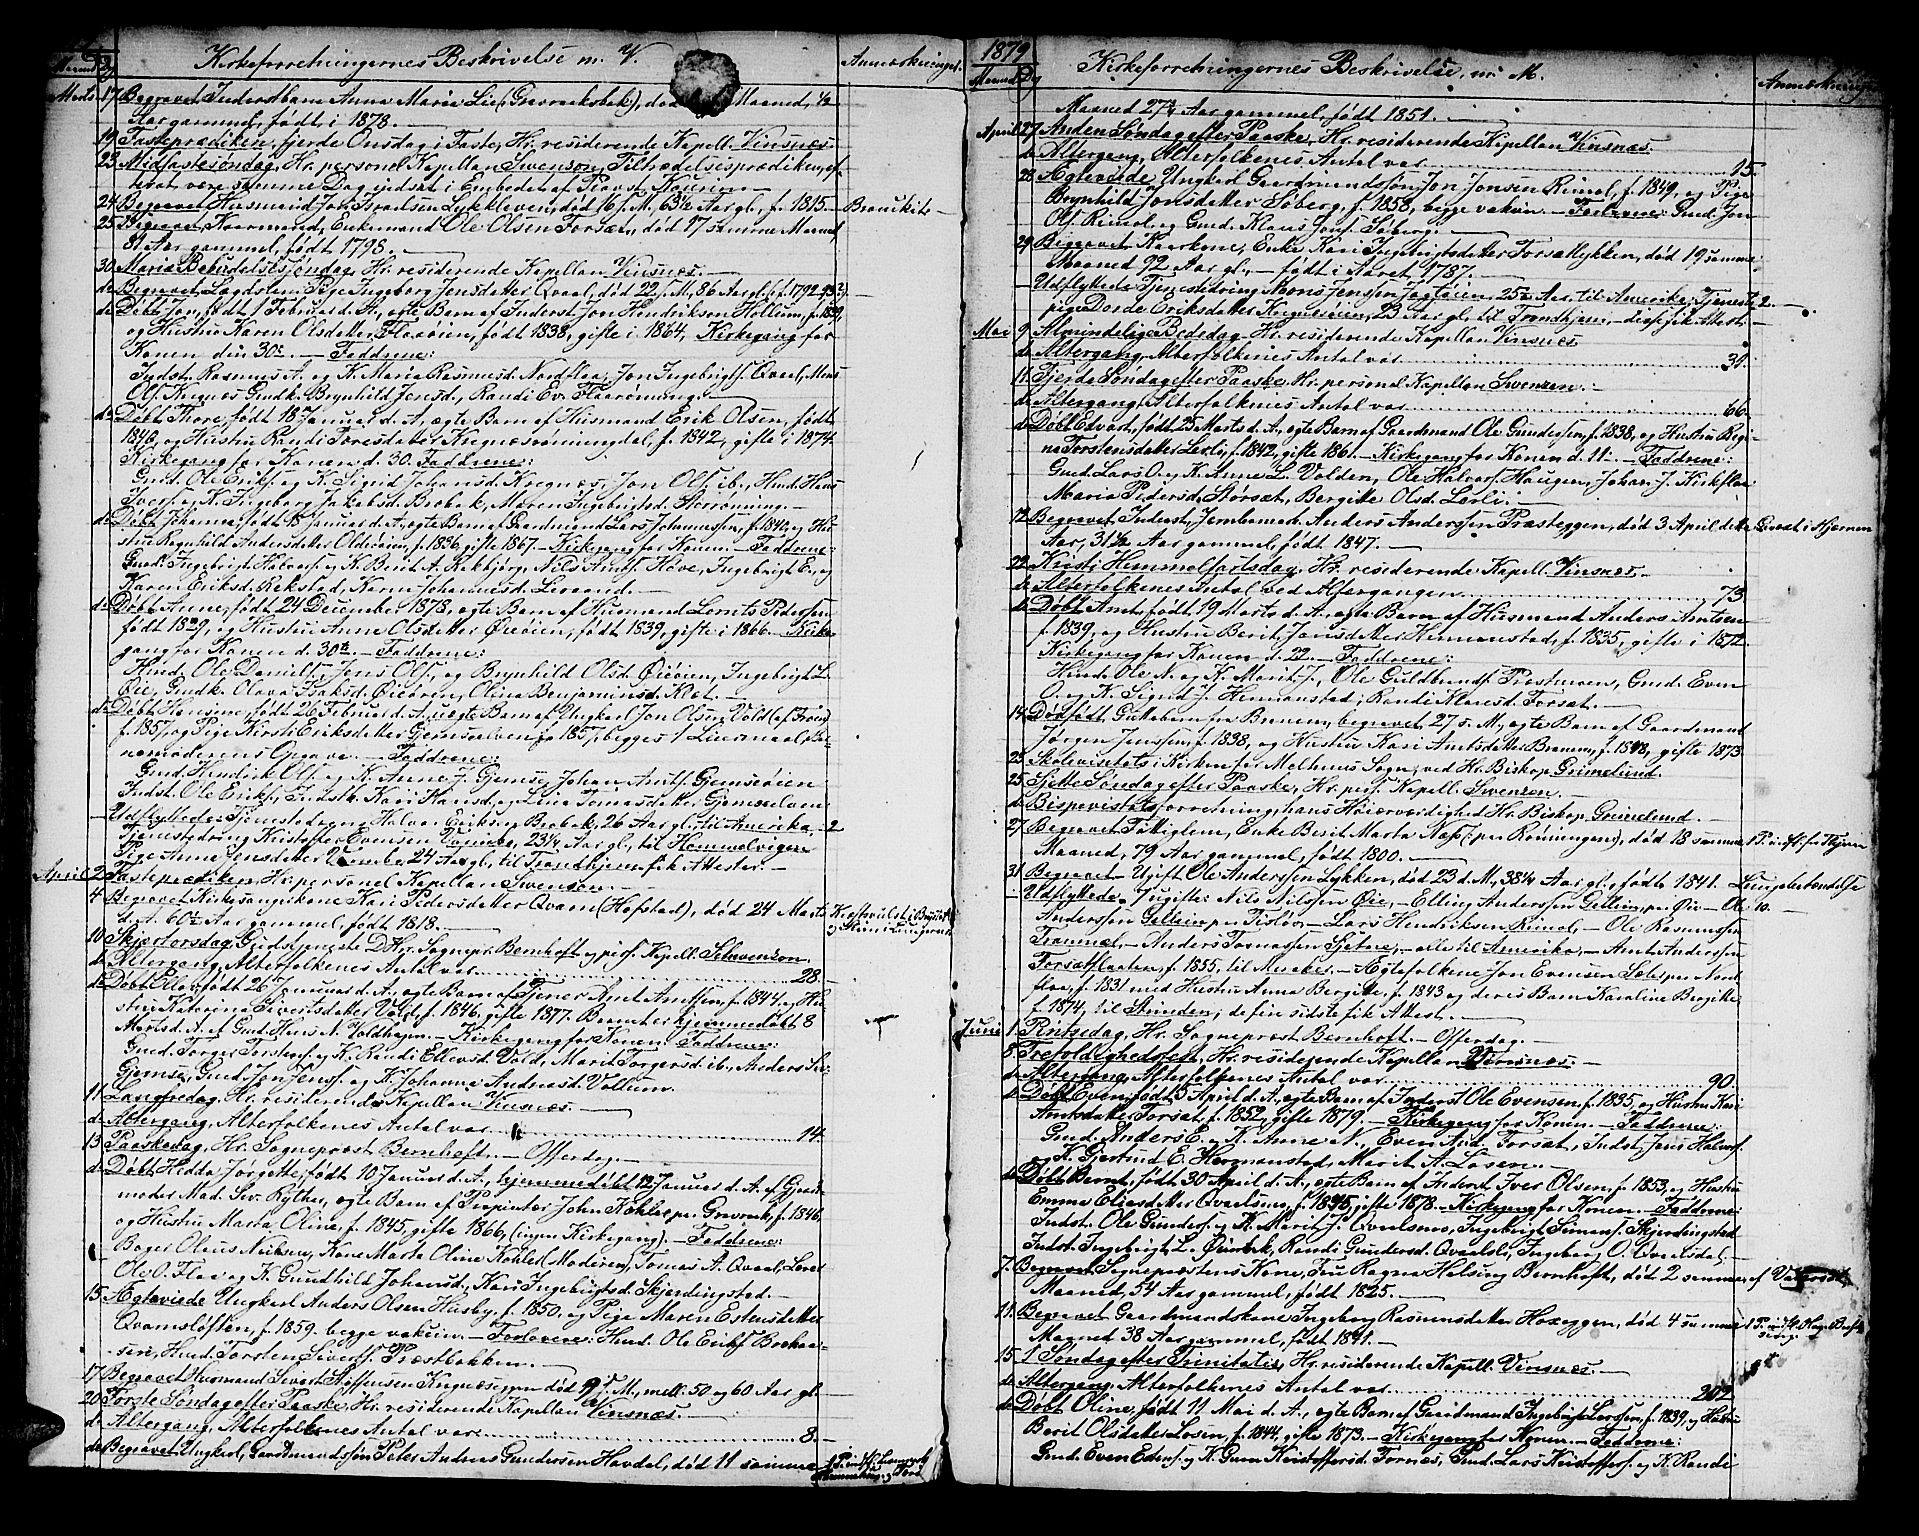 Kirkeforretningernes Beskrivelse m. V.
Anmærkninger.
Marts 17 Begravet Inderstbarn Anna Maria Lie (Gravraakbak), død Maaned, ½
Aar gammel, født i 1878.
19 Fasteprædiken, fjerde Onsdag i Faste, Hr. residerende Kapell. Vinsnæs.
23 Midfastesøndag, Hr. personel Kapellan Svenson, Tiltrædelsesprædiken, ef-
terat være samme Dag indsat i Embedet af Provst
24 Begravet Husmand Jon Lykkleven, død 16 s. M., 63½ Aar gl., f. 1815. Bronkit
25 Begravet Enkemand Ole Olsen Forsæt, død 17 samme Maaned,
81 Aar gammel, født 1798.
30 Maria Bebudelsessøndag, Hr. residerende Kapellan Vinsnæs.
do Begravet Pige Ingeborg Jensdatter Qvaal, død 22 s. M., 86 Aar gl., f. 1792
do Døbt Jon, født 1 Februar d. A., ægte Barn af Inderst Jon Hendrikson Hollum, f. 1839,
og Hustru Karen Olsdatter Flaaøien, født 1838, gifte i 1864, Kirkegang for
Konen den 30te. Faddrene:
Indst. Rasmus A. og K. Maria Rasmusd. Nordflaa, Jon Ingebrigts. Qvaal, Mons
Ols. Krognæs Gmdk. Brynhild Jensd., Randi Ev. Flaarønning.
do Døbt Thore, født 18 Januar d. A., ægte Barn af Husmand Erik Olsen, født
1846, og Hustru Randi Toresdatter Krognæsrønningdal, f. 1842, gifte i 1874.
Kirkegang for Konen d. 30. Faddrene:
Gmd. Ole Eriks. og K. Sigrid Johansd. Krognæs, Jon Ols. ib., Hmd. Hans
Ivers. og K. Ingeborg Jakobsd. Brobak, Maren Ingebrigtsd. Storrønning.
do Døbt Johanna, født 18 Januar d. A., ægte Barn af Gaardmand Lars Johannessen, f. 1842 og Hu-
stru Ragnhild Andersdatter Olderøien, f. 1836, gifte 1867. Kirkegang for Konen. Faddrene:
Gmd. Ingebrigt Halvors. og K. Berit A. Rekbjør, Nils Arnts. Hove, Ingebrigt E. og
Karen Eriksd. Rekstad, Karen Johannesd. Leraand.
do Døbt Anne, født 24 December 1878, ægte Barn af Husmand Lornts Pedersen,
født 1829, og Hustru Anne Olsdatter Øreøien, født 1839, gifte i 1866. Kirke-
gang for Konen d. 30te. Faddrene:
Hmd. Ole Daniels., Jens Ols., og Brynhild Olsd. Øieøien, Ingebrigt L.
Øie, Gmdk. Olava Isaksd. Øietrøen, Olina Benjaminsd. Klet.
do Døbt Hansine, født 26 Februar d. A., uægte Barn af Ungkarl Jon Olsen Vold (af Støren)
f. 1857 og Pige Kirsti Eriksdatter Gjemselven, f. 1857, begges 1 Leiermaal, Bar-
nemoderens Opgave. Faddrene:
Gmd. Hendrik Ols. og K. Anne J. Gjemse, Johan Arnts. Gjemseøien
Indst. Ole Eriks., Indstk. Kari Hansd. og Lena Tomasdatter Gjemselven
Udflyttede: Tjenestedreng Halvor Eriksen Brobak, 26 Aar gl., til Amerika. 2
Tjenestedreng Kristoffer Evensen 23¼ Aar gl., til Hommelvigen
Pige Anne Jensdatter 24 Aar gl., til Trondhjem fik Attester.
April 2 Fasteprædiken, Hr. personel Kapellan Svenson.
4 Begravet Kirkesangerskone Kari Pedersdatter Qvam (Hofstad), død 24 Marts
d. A. 60½ Aar gammel, født 1818. Kræftsvulst i Brystet
10 Skjærtorsdag, Gudstjeneste Hr. Sognepr. Bernhoft og pers. Kapell. Schwenson.
do Altergang, Alterfolkenes Antal var 28.
do Døbt født 26 Januar d. A., ægte Barn af Tjener Arnt Arntsen, f. 1844 og Hu-
stru Katarina Sivertsdatter Vold, f. 1846, gifte 1877. Barnet er hjemmedøbt 8
Marts d. A. af Gmd. Hans N. Voldhagen. Kirkegang for Konen. Faddrene:
Gmd. Torger Torstens. og K. Randi Ellevsd. Vold, Marit Torgersd. ib., Anders
Gjemse, Gmd. Jon Jens. og K. Johanna Andersd. Vollum.
11 Langfredag, Hr. residerende Kapellan Vinsnæs.
do Altergang, Alterfolkenes Antal var 14.
13 Paaskedag, Hr. Sogneprest Bernhoft. Offerdag.
do Døbt Hedda Jorgette, født 10 Januar d. A., hjemmedøbt 12 Januar d. A. af Gjord-
moder Mad. Siv. Rythen, ægte Barn af John Kohl Gravraak, f. 1846,
og Hustru Marta Olina, f. 1845, gifte 1866, (ingen Kirkegang). Faddrene:
Bager Olaus Nielsen, Kone Marta Olina Kohl (Moderen), Tomas A. Qvaal,
Ole O. Flaa og K. Gundhild Johansd., Kari Ingebrigtsd. Skjerdingstad.
15 Ægteviede Ungkarl Anders Olsen Husby, f. 1850, og Pige Maren Estensdatter
Qvamsløkken, f. 1859. begge vakcin. Forlovere: Hmd. Ole Eriks.
Hmd. Torsten Siverts. Præstbakken.
17 Begravet Husmand Sivert Steffensen Krognæs død 9 s. M., mell. 50 og 60 Aar gl.
20 Første Søndag efter Paaske, Hr. residerende Kapellan Vinsnæs.
do Altergang, Alterfolkenes Antal var 8.
do Begravet Ungkarl, Gaardmandssøn Peter Andreas Gundersen Havdal, død 11 samme
1879
Kirkeforretningernes Beskrivelse, m. M.
Anmærkninger
Maaned 27¾ Aar gammel, født 1851.
April 27 Anden Søndag efter Paaske, Hr. residerende Kapellan Vinsnæs.
do Altergang, Alterfolkenes Antal var 15.
28 Ægteviede, Ungkarl Gaardmandssøn Jon Jonsen Rimol, f. 1849, og Pige
Brynhild Jonsdatter Søberg, f. 1858, begge vakcin. Forlovere: Gmd. Jon
Ols. Rimol, og Gmd. Klaus Jons. Søberg.
29 Begravet Enke Kari Ingebrigtsdatter Forsætlykken, død 19 samme
Maaned 92 Aar gl., født i Aaret 1787.
Udflyttede Tjenestedreng Mons Jenssen Jagtøien, 25½ Aar, til Amerika; Tjeneste- 2
pige Dorde Eriksdatter 23 Aar gl., til Trondhjem, disse fik Attest.
Mai 9 Almindelige Bededag, Hr. residerende Kapellan Vinsnæs
do Altergang, Alterfolkenes Antal var 39.
11 Fjerde Søndag efter Paaske, Hr. personel Kapellan Swenzen.
do Altergang, Alterfolkenes Antal var 66.
do Døbt Edvart, født 25 Marts d. A., ægte Barn af Gaardmand Ole Gundersen, f. 1838, og Hustru Regi-
na Torstensdatter Lerli, f. 1842, gifte 1861. Kirkegang for Konen d. 11. Faddrene:
Gmd. Lars O. og K. Anne L. Volden, Ole Halvors. Haugen, Johan J. Kirkflaa
Maria Pedersd. Forsæt, Bergitte Olsd. Lerli.
12 Begravet, Inderst, Jernbanearb. Anders Anderssen Præsteggen, død 3 April dette
Aar, 31½ Aar gammel, født 1847.
22 Kristi Himmelfartsdag, Hr. residerende Kapell. Vinsnæs.
do Alterfolkenes Antal ved Altergangen 73
do Døbt Arnt, født 19 Marts d. A., ægte Barn af Husmand Anders Arntsen
f. 1839, og Hustru Berit Jonsdatter Hermanstad, f. 1835, gifte i 1872.
Kirkegang for Konen d. 22. Faddrene:
Hmd. Ole N. og K. Marit J., Ole Guldbrands. Præstmoen, Gmd. Even
O. og K. Sigrid J. Hermanstad, Randi Klausd. Forsæt.
14 Dødfødt Guttebarn fra Bruen, begravet 27 s. M., ægte Barn af Gaardmand
Jørgen Jenssen, f. 1838, og Hustru Kari Arntsdatter Bruen, f. 1848, gifte 1873
23 Skolevisitats i Kirken for Melhus Sogn, ved Hr. Biskop Grimelund.
25 Sjette Søndag efter Paaske, Hr. pers. Kapell. Swenzen.
do Bispevisitatsforretning, hans Høiærværdighed Hr. Biskop Grimelund.
27 Begravet Fattiglem, Enke Berit Marta Næss (per Rønningen), død 18 samme
Maaned, 79 Aar gammel, født 1800.
31 Begravet Ugift Ole Anderssen Lykken, død 23 d. M., 38¼ Aar gl., født 1841. Lungebetændelse
Udflyttede, 7 ugifte: Nils Nilssen Øie, Elling Anderssen Gylling per Øie, Ole 10.
Anderssen Lars Hendriksen Rimol, Ole Rasmussen
Trammel, Anders Tomassen Sjetne, alle til Amerika, Arnt Anderssen
Forsætflaaten, f. 1855, til Meraker, Ægtefolkene Jon Evensen per Nord-
flaa, f. 1831 med Hustru Anna Bergitte, f. 1843 og deres Barn Karoline Bergitte
f. 1874, til Strinden; de fire sidste fik Attest.
Juni 1 Pintsedag, Hr. Sogneprest Bernhoft. Offerdag.
8 Trefoldighedsfest, Hr. residerende Kapellan Vinsnæs.
do Altergang, Alterfolkenes Antal var 90.
do Døbt Even, født 5 April d. A., ægte Barn af Inderst Ole Evensen, f. 1835, og Hustru Kari
Arntsdatter Forsæt, f. 1852, gifte 1879. Kirkegang for Konen. Faddrene:
Gmd. Anders E. og K. Anne N., Even And. Forsæt, Indst. Jens Halvors.
og K. Gjertrud E. Hermanstad, Marit A. Losen.
do Døbt Bernt, født 30 April d. A., ægte Barn af Inderst Iver Olsen, f. 1853, og Hustru
Emma Eliasdatter Qvalsnes, f. 1848, gifte 1878. Kirkegang for Konen. Faddrene:
Indst. Ole Gunders. og K. Marit J. Qvalsnes, Ingebrigt Simens. Skjerdingstad
Indst. Ingebrigt L. Øienbek, Randi Gundersd. Qvaalsl., Ingeborg O.
7 Begravet Sogneprestens Kone, Fru Ragna Helsing Bernhoft, død 2 samme af Vatersot
Maaned, 54 Aar gammel, født 1825.
11 Begravet Gaardmandskone Ingeborg Rasmusdatter Hoxeggen, død 4 samme
Maaned 38 Aar gammel, født 1841.
15 1 Søndag efter Trinitatis, Hr. residerende Kapell. Vinsnæs.
do Altergang, Alterfolkenes Antal var 202
do Døbt Oline, født 11 Mai d. A., ægte Barn af Gaardmand Ingebrigt Larssen, f. 1839, og Hustru
Berit Olsdatter Losen, f. 1844, gifte 1873. Kirkegang for Konen. Faddrene:
Gmd. Even Edens. og K. Guren Kristoffersd. Fornæs, Gmd. Lars Kristoffers. og K. Randi